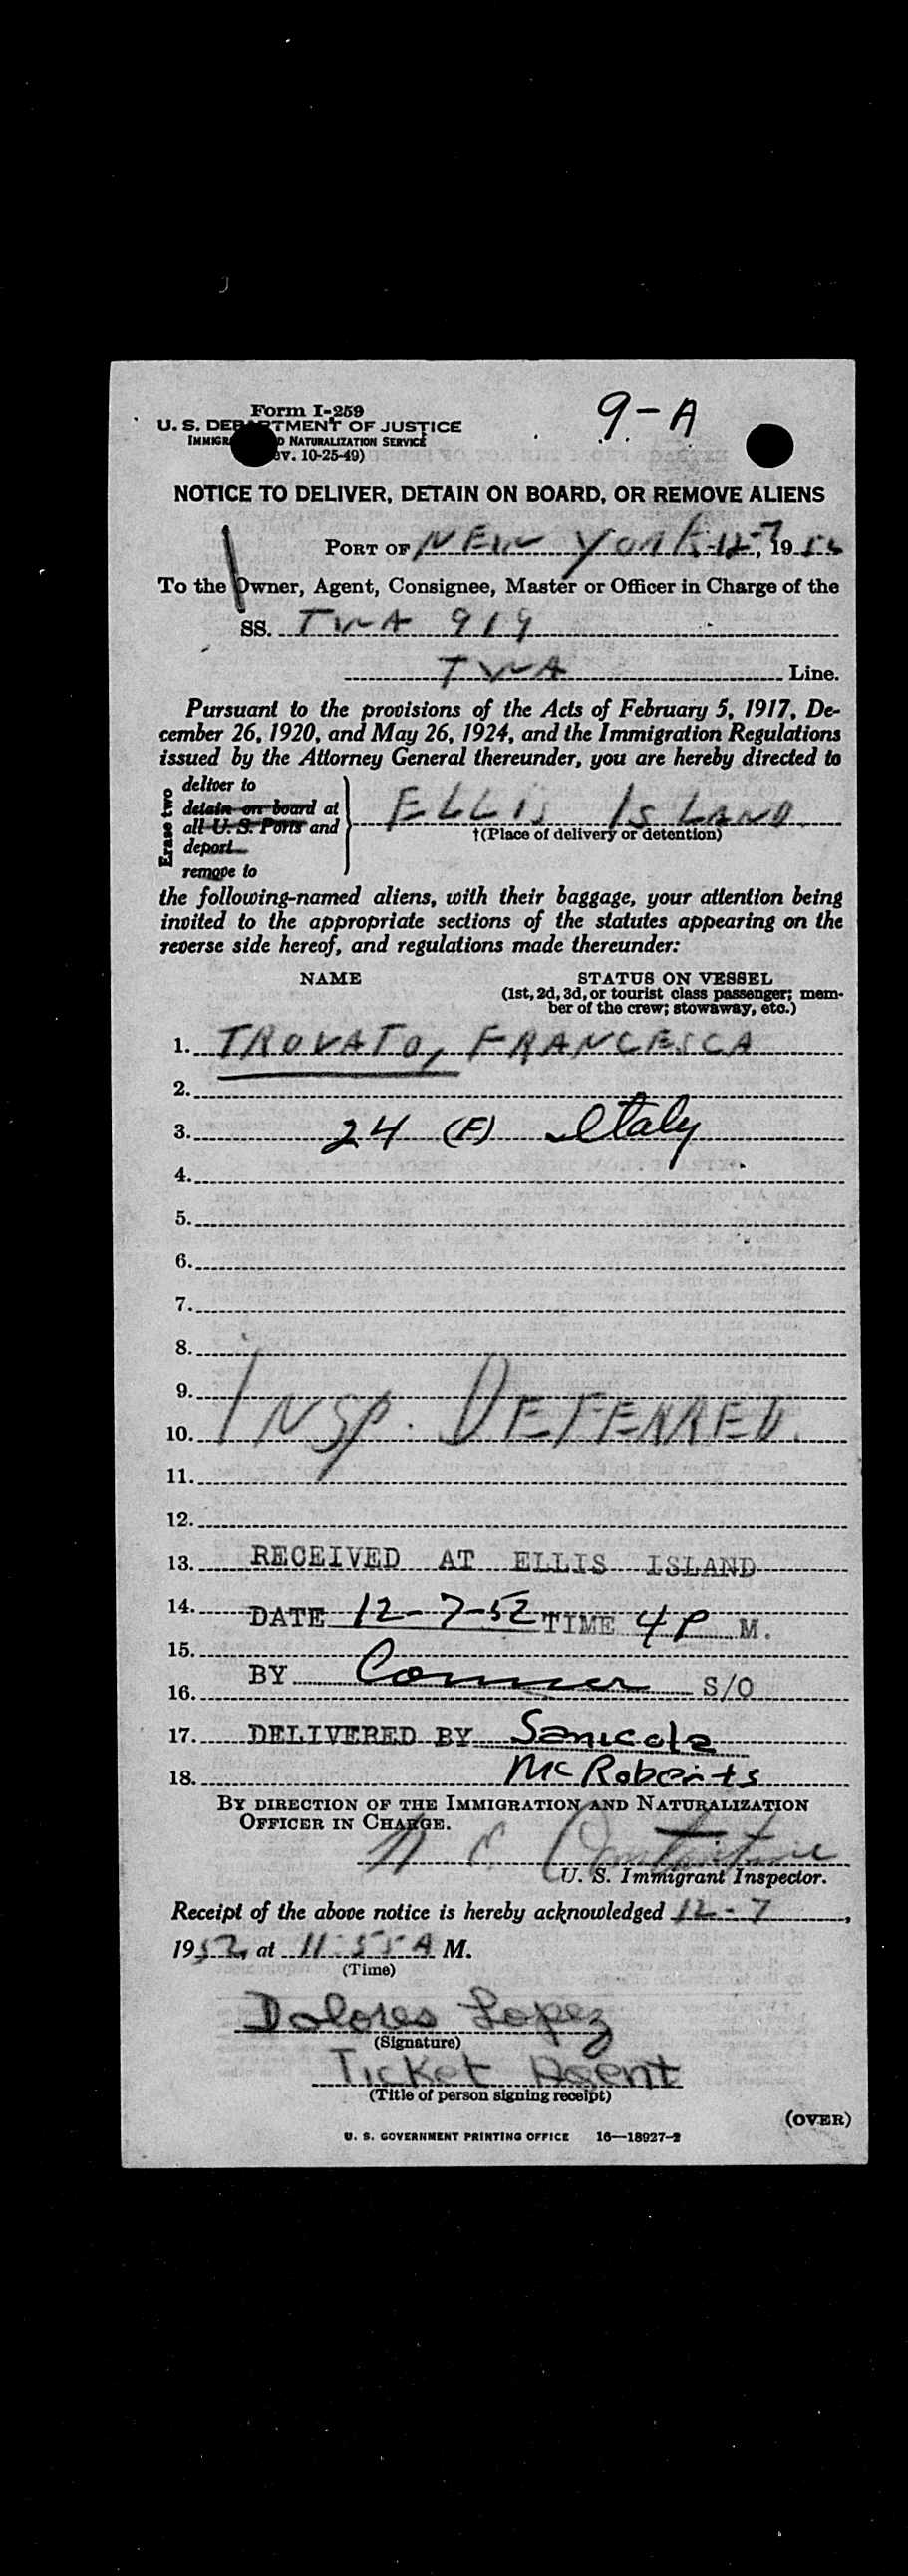 Form I-259
9-A
U. S. DEPARTMENT OF JUSTICE
IMMIGR D NATURALIZATION SERVICE
ev. 10-25-49)
NOTICE TO DELIVER, DETAIN ON BOARD, OR REMOVE ALIENS
PORT OF NEW York 12-7, 1952
To the Owner, Agent, Consignee, Master or Officer in Charge of the
SS. TWA 919
TWA Line.
Pursuant to the provisions of the Acts of February 5, 1917, De-
cember 26, 1920, and May 26, 1924, and the Immigration Regulations
issued by the Attorney General thereunder, you are hereby directed to
Erase two
deliver to
detain on board at
all U. S. Ports and
deport
remove to
ELLIS ISLAND
†(Place of delivery or detention)
the following-named aliens, with their baggage, your attention being
invited to the appropriate sections of the statutes appearing on the
reverse side hereof, and regulations made thereunder:
NAME STATUS ON VESSEL
(1st, 2d, 3d, or tourist class passenger; mem-
ber of the crew; stowaway, etc.)
1. TROVATO, FRANCESCA
2.
3. 24 (F) Italy
4.
5.
6.
7.
8.
9.
10. INSP. DEFERRED.
11.
12.
13. RECEIVED AT ELLIS ISLAND
14. DATE 12-7-52 TIME 4 P M.
15.
BY S/O
16.
17. DELIVERED BY Sanicola
18. McRoberts
BY DIRECTION OF THE IMMIGRATION AND NATURALIZATION
OFFICER IN CHARGE.
U. S. Immigrant Inspector.
Receipt of the above notice is hereby acknowledged 12-7,
1952, at 11:55 A M.
(Time)
Dolores Lopez
(Signature)
Ticket Agent
(Title of person signing receipt)
(OVER)
U. S. GOVERNMENT PRINTING OFFICE 16—18927-2